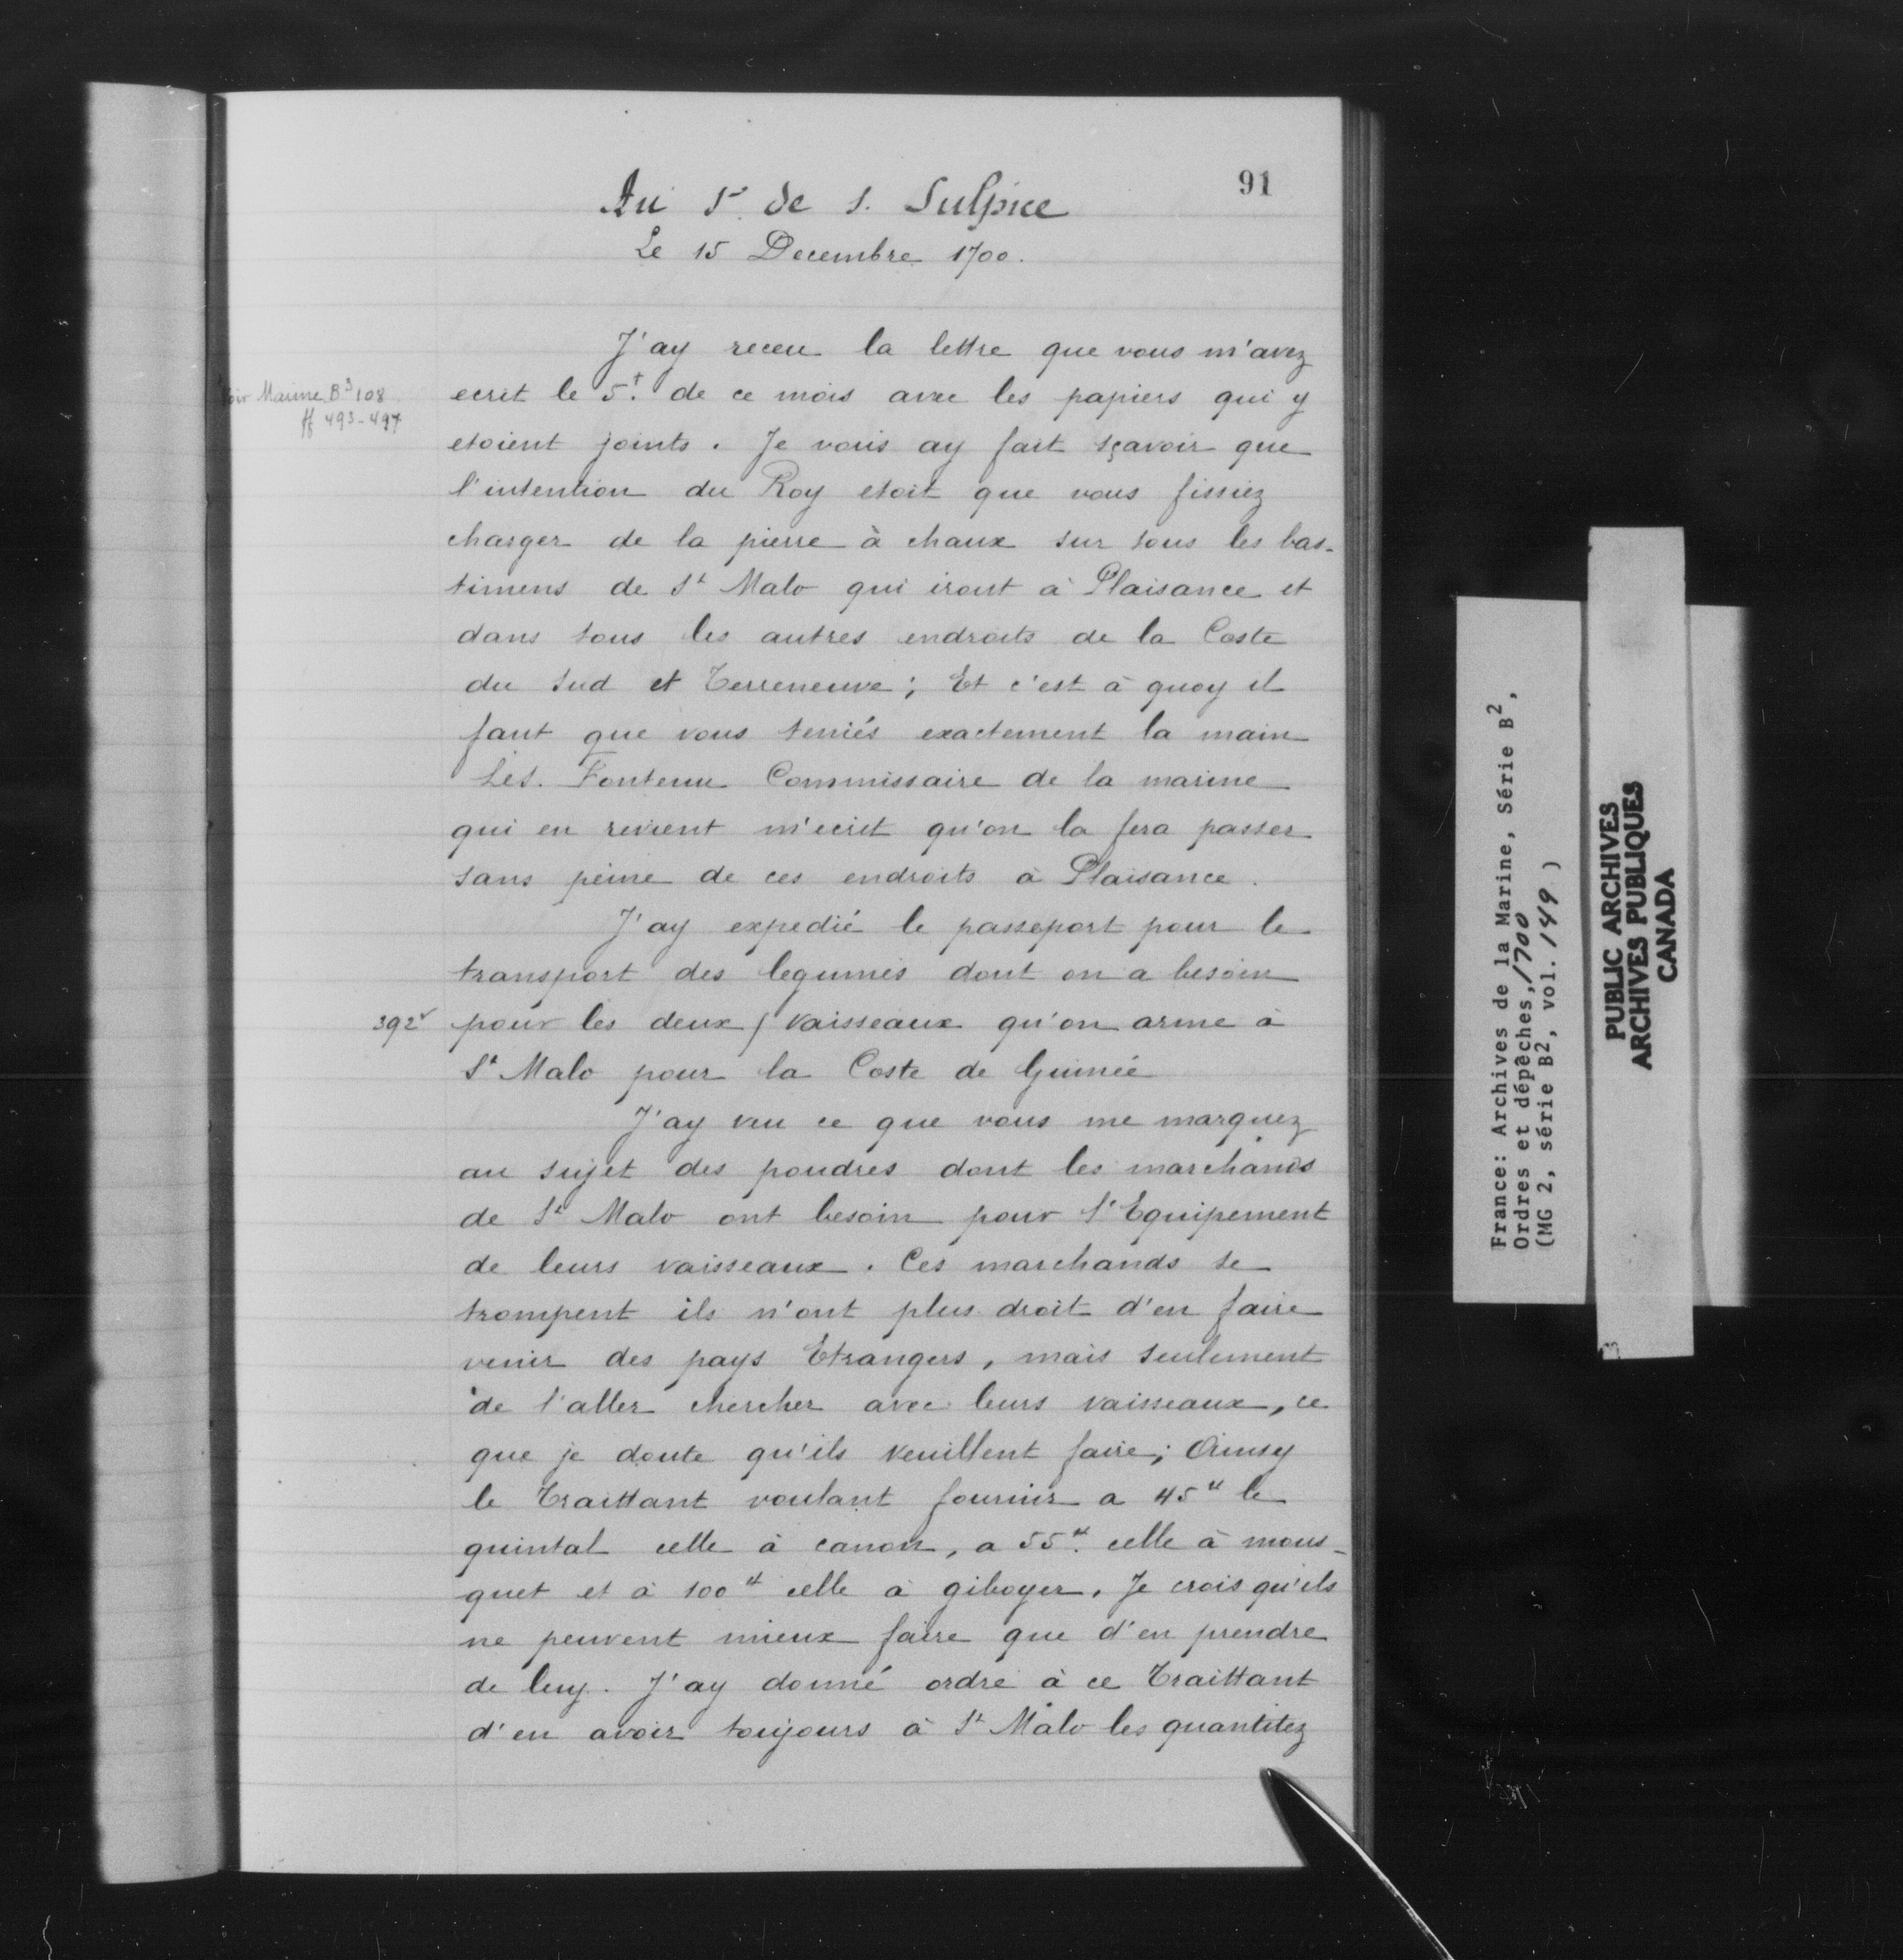 91
Au Sr. de S. Sulpice
Le 15 Decembre 1700.
J'ay receu la lettre que vous m'avez
Voir Marine B3 108
ff 493-497
ecrit le 5.t de ce mois avec les papiers qui y
etoient joints. Je vous ay fait sçavoir que
l'intention du Roy etoit que vous fissiez
charger de la pierre à chaux sur tous les bas-
timens de St Malo qui iront à Plaisance et
dans tous les autres endroits de la Coste
du Sud et Terreneuve; Et c'est à quoy il
faut que vous teniés exactement la main
Le S. Fontenu Commissaire de la marine
qui en revient m'ecrit qu'on la fera passer
sans peine de ces endroits à Plaisance.
J'ay expedié le passeport pour le
transport des legumes dont on a besoin
392v pour les deux / vaisseaux qu'on arme à
St Malo pour la Coste de Guinée
J'ay veu ce que vous me marquez
au sujet des poudres dont les marchands
de St Malo ont besoin pour l'Equipement
de leurs vaisseaux. Ces marchands se
trompent ils n'ont plus droit d'en faire
venir des pays Etrangers, mais seulement
de l'aller chercher avec leurs vaisseaux, ce
que je doute qu'ils veuillent faire; Ainsy
le Traittant voulant fournir a 45tt le
quintal celle à canon, a 55tt. celle à mous-
quet et à 100tt celle à giboyer. Je crois qu'ils
ne peuvent mieux faire que d'en prendre
de luy. J'ay donné ordre à ce Traittant
d'en avoir toujours à St Malo les quantitez
France: Archives de la Marine, Série B2,
Ordres et dépêches, 1700
(MG 2, série B2, vol. 149)
PUBLIC ARCHIVES
ARCHIVES PUBLIQUES
CANADA